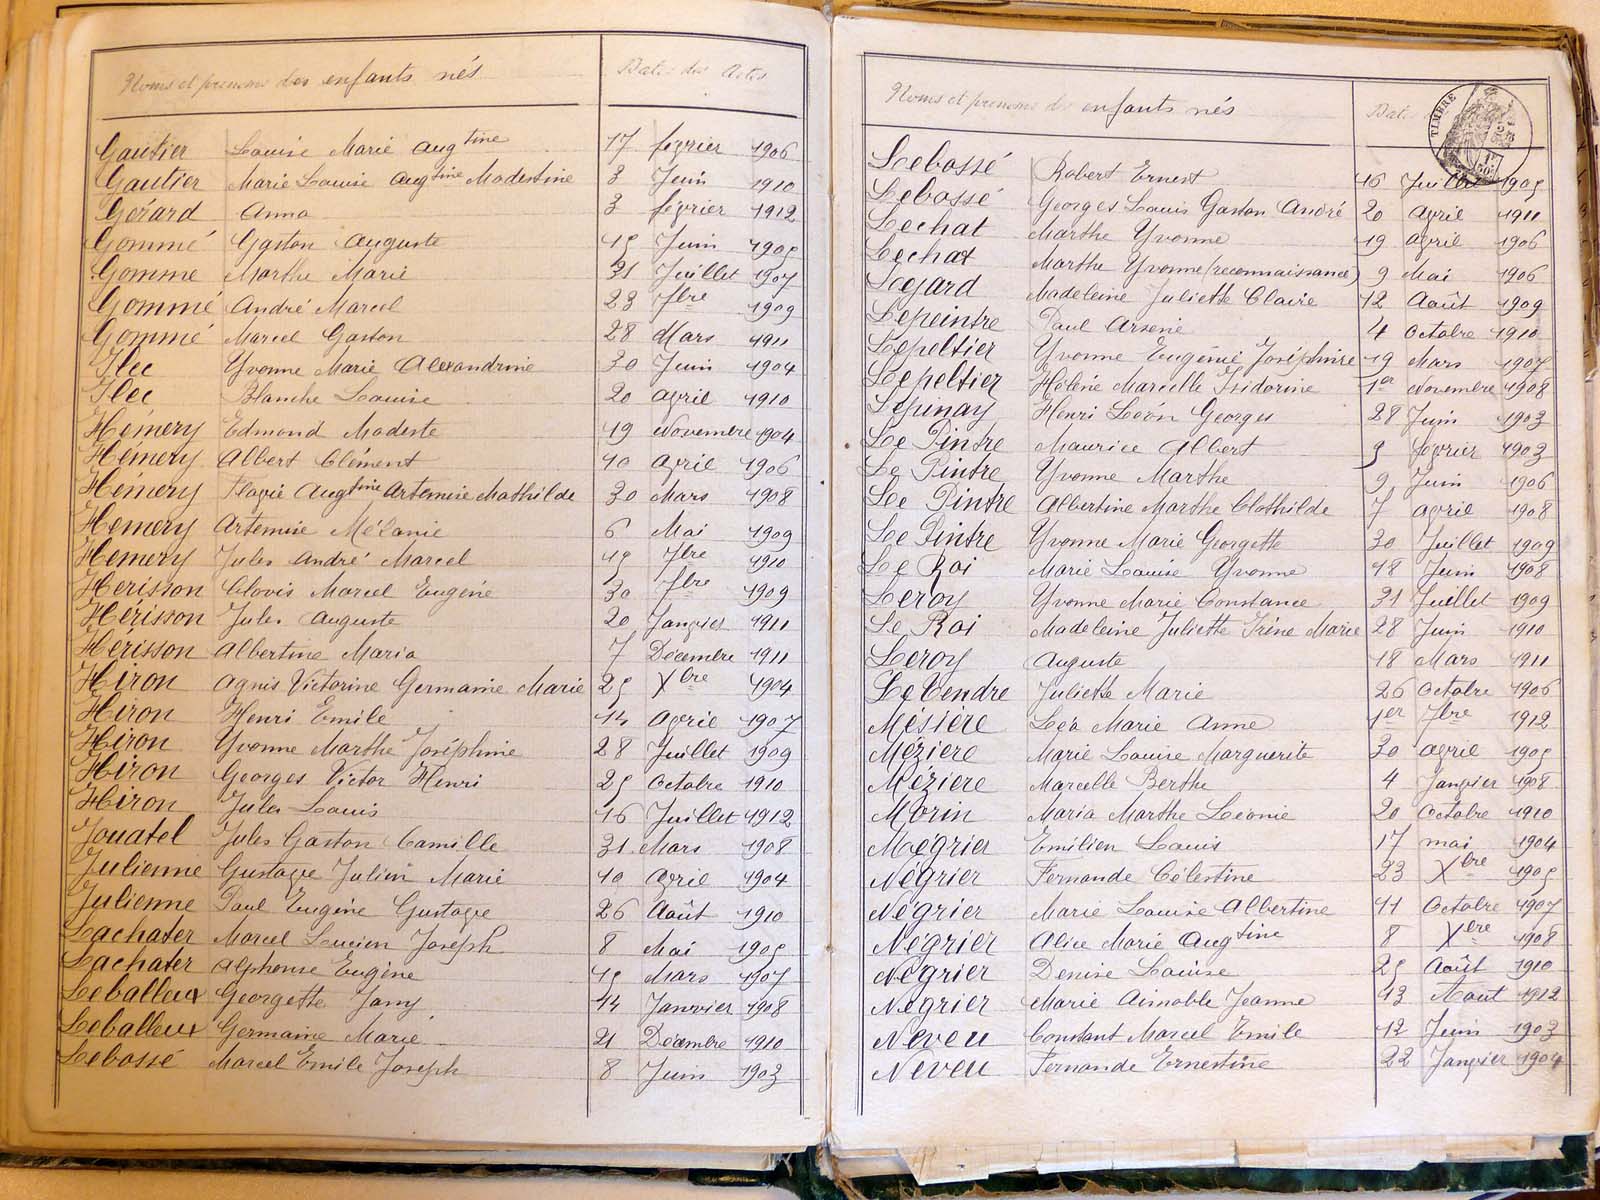 Noms et prénoms des enfants nés Dates des Actes
Gautier Louise Marie Augtine 17 février 1906
Gautier Marie Louise Augtine Modestine 3 Juin 1910
Gérard Anna 3 février 1912
Gommé Gaston Auguste 15 Juin 1905
Gomme Marthe Marie 31 Juillet 1907
Gommé André Marcel 23 7bre 1909
Gommé Marcel Gaston 28 Mars 1911
Yvonne Marie Alexandrine 30 Juin 1904
Blanche Louise 20 avril 1910
Hémery Edmond Modeste 19 Novembre 1904
Hémery Albert Clément 10 avril 1906
Hémery Flavie Augtine Artemise Mathilde 30 Mars 1908
Hemery Artemise Mélanie 6 Mai 1909
Hemery Jules André Marcel 15 7bre 1910
Herisson Clovis Marcel Eugène 30 7bre 1909
Hérisson Jules Auguste 20 Janvier 1911
Hérisson Albertine Maria 7 Décembre 1911
Hiron Agnès Victorine Germaine Marie 25 Xbre 1904
Hiron Henri Emile 14 avril 1907
Hiron Yvonne Marthe Joséphine 28 Juillet 1909
Hiron Georges Victor Henri 25 Octobre 1910
Hiron Jules Louis 16 Juillet 1912
Jouatel Jules Gaston Camille 31 Mars 1908
Julienne Gustave Julien Marie 10 avril 1904
Julienne Paul Eugène Gustave 26 Août 1910
Lachater Marcel Lucien Joseph 8 Mai 1905
Lachater Alphonse Eugène 15 Mars 1907
Leballeux Georgette Jany 14 Janvier 1908
Leballeux Germaine Marie 21 Décembre 1910
Lebossé Marcel Emile Joseph 8 Juin 1903
Noms et prénoms des enfants nés Dates
TIMBRE
Lebossé Robert Ernest 16 Juillet 1905
Lebossé Georges Louis Gaston André 20 avril 1911
Lechat Marthe Yvonne 19 avril 1906
Lechat Marthe Yvonne (reconnaissance) 9 Mai 1906
Legard Madeleine Juliette Claire 12 Août 1909
Lepeintre Paul Arsene 4 Octobre 1910
Lepeltier Yvonne Eugénie Joséphine 19 Mars 1907
Lepeltier Hélène Marcelle Isidorine 1er Novembre 1908
Lepinay Henri Léon Georges 28 Juin 1903
Le Pintre Maurice Albert février 1903
Le Pintre Yvonne Marthe 9 Juin 1906
Le Pintre Albertine Marthe Clothilde 7 avril 1908
Le Pintre Yvonne Marie Georgette 30 Juillet 1909
Le Roi Marie Louise Yvonne 18 Juin 1908
Leroy Yvonne Marie Constance 31 Juillet 1909
Le Roi Madeleine Juliette Irène Marie 28 Juin 1910
Leroy Auguste 18 Mars 1911
Juliette Marie 26 Octobre 1906
Mésière Léa Marie Anne 1er 7bre 1912
Meziere Marie Louise Marguerite 30 avril 1905
Méziere Marcelle Berthe 4 Janvier 1908
Morin Maria Marthe Léonie 20 Octobre 1910
Négrier Emilien Louis 17 mai 1904
Négrier Fernande Célestine 23 Xbre 1905
Négrier Marie Louise Albertine 11 Octobre 1907
Négrier Alice Marie Augtine 8 Xbre 1908
Négrier Denise Louise 25 Août 1910
Négrier Marie Aimable Jeanne 13 Aout 1912
Neveu Constant Marcel Emile 12 Juin 1903
Neveu Fernande Ernestine 22 Janvier 1904